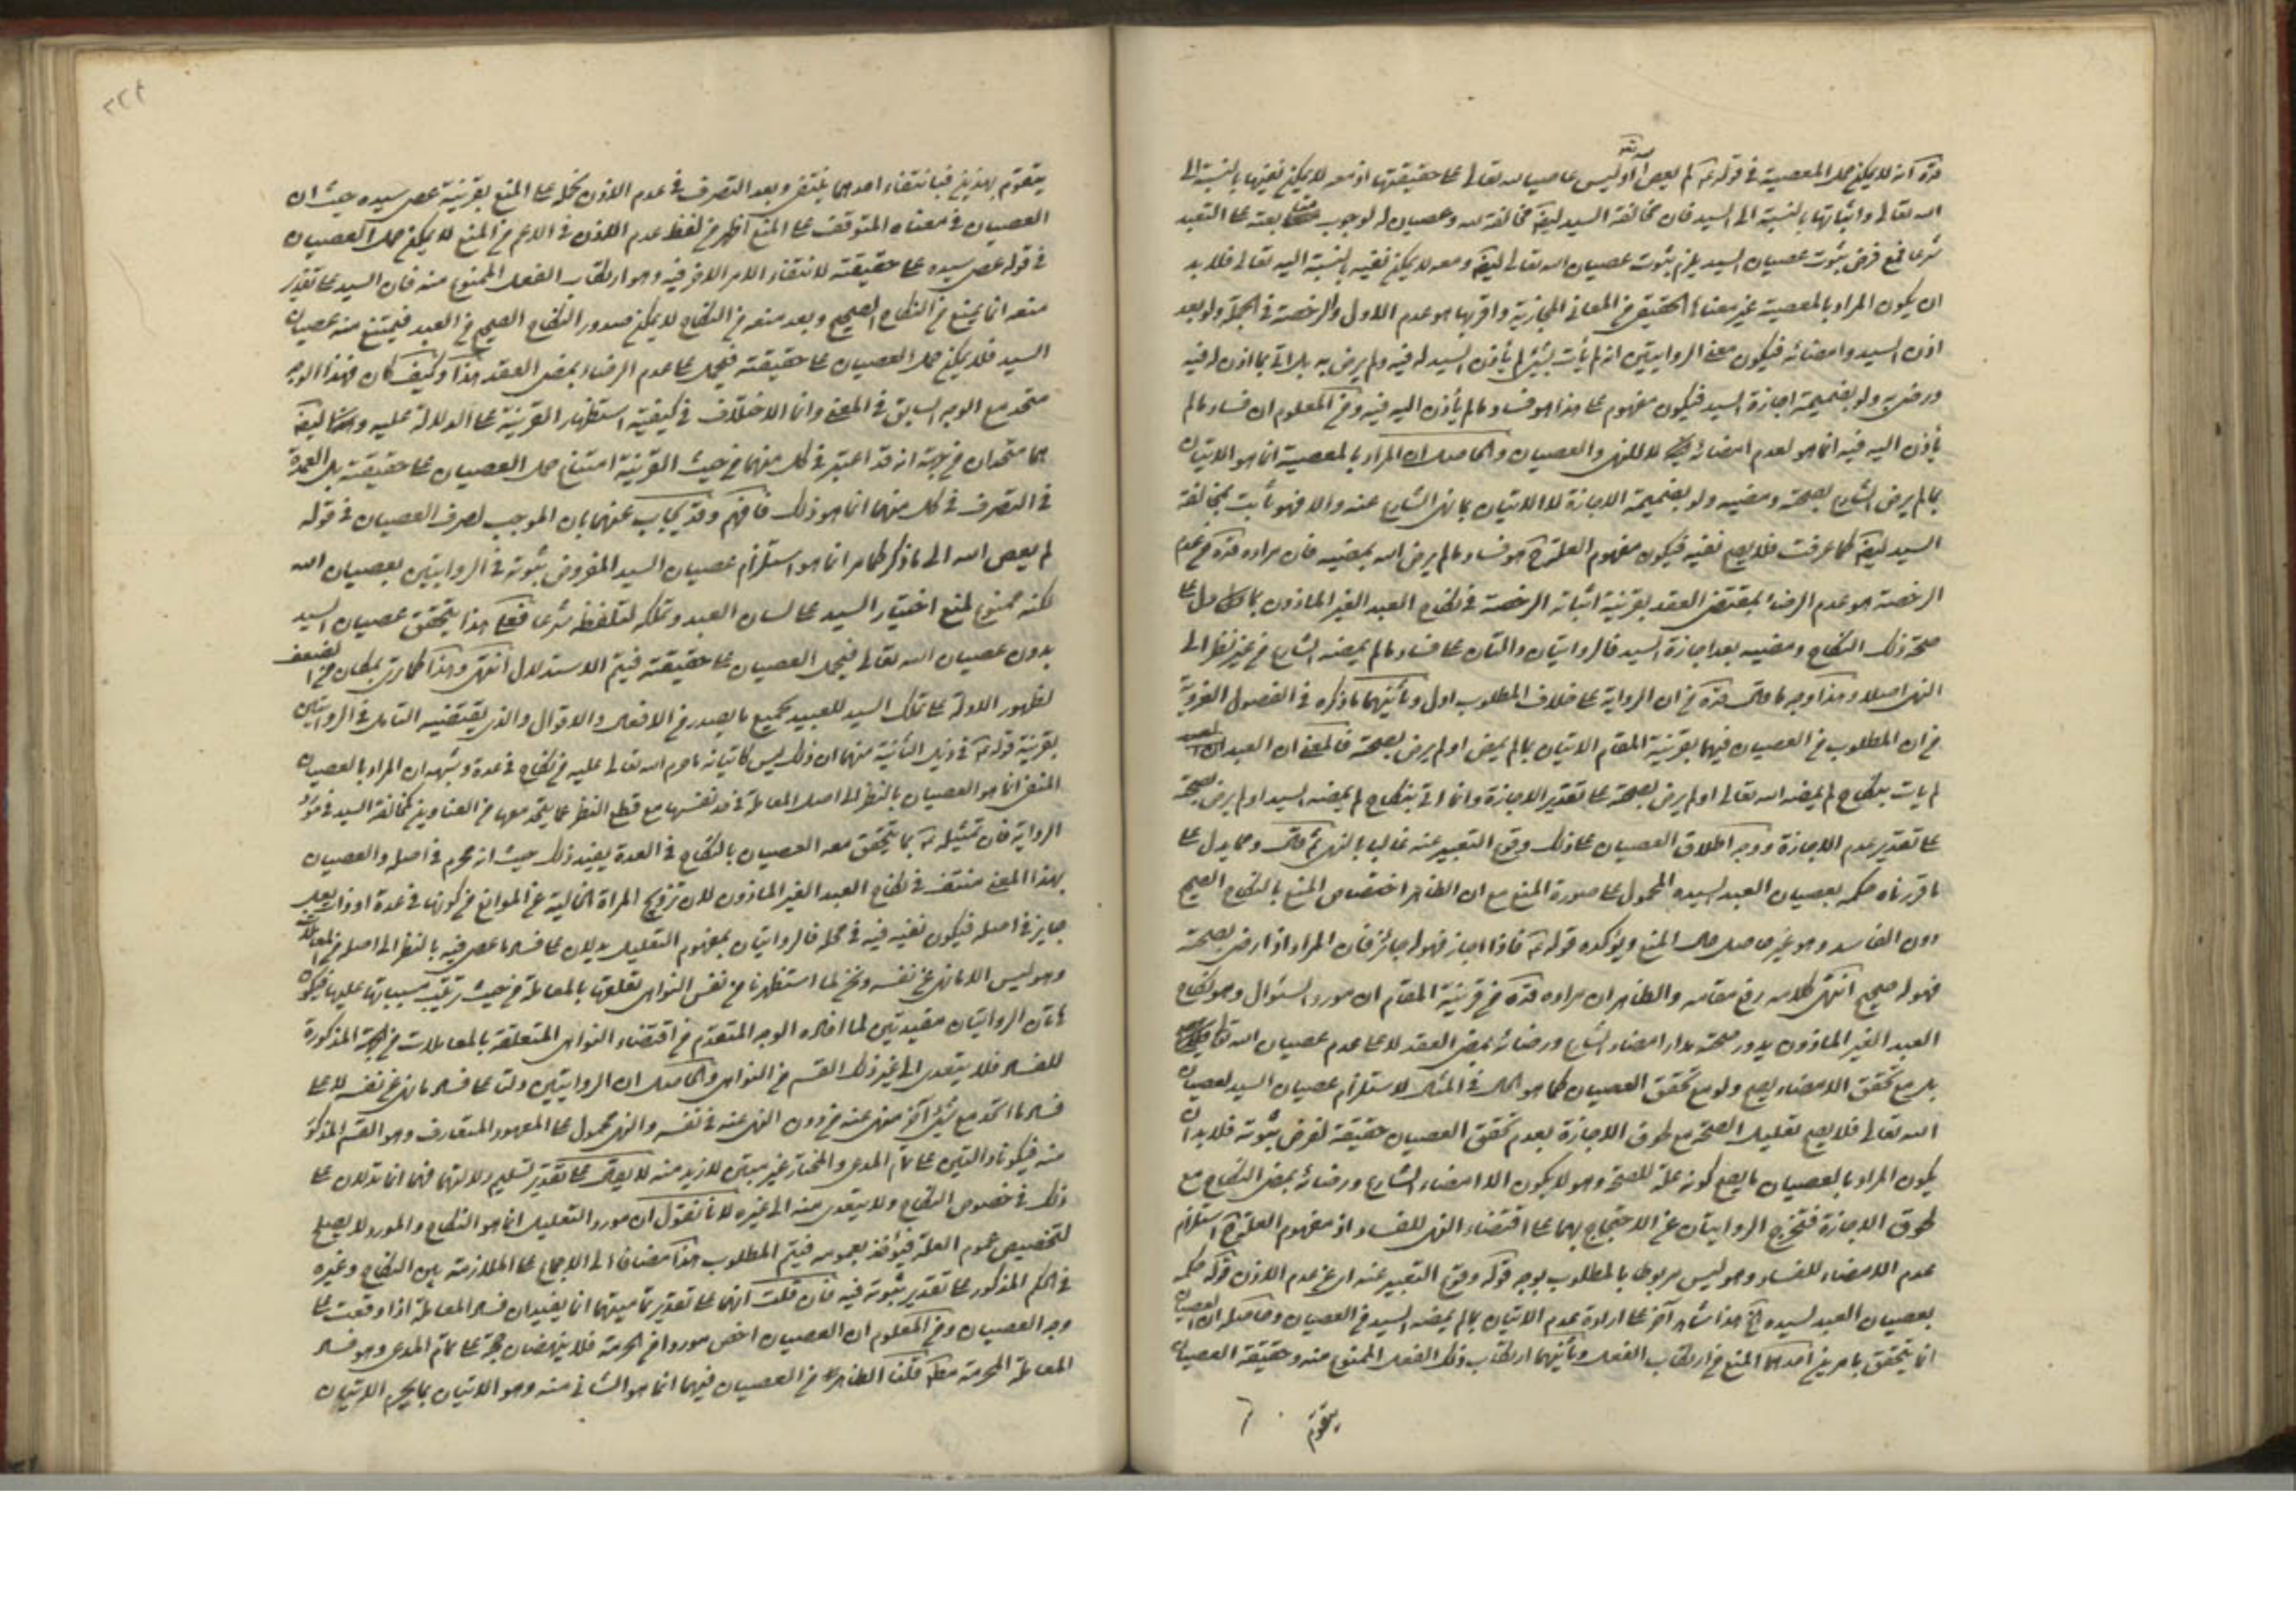 قده انه لا يمكن حمل المعصية في قوله ع لم يعص الله او ليس عاصيا لله تعالى على حقيقتها اذ معه لا يمكن نفيها بالنسبة الى
الله تعالى واثباتها بالنسبة الى السيد فان مخالفة السيد ايضا مخالفة لله وعصيان له لوجوب متابعته على العبد
شرعا فمع فرض ثبوت عصيان السيد يلزم ثبوت عصيان الله تعالى ايضا ومعه لا يمكن نفيه بالنسبة اليه تعالى فلا بد
ان يكون المراد بالمعصية غير معناها الحقيقي من المعاني المجازية واقربها هو عدم الاول والرخصة في الجملة ولو بعد
اذن السيد وامضائه فيكون معنى الروايتين انه لم يأت بشيء لم يأذن السيد له فيه ولم يرض به بل اتى بما اذن له فيه
ورضي به ولو بضميمة اجازة السيد فيكون مفهوم على هذا هو فساد ما لم يأذن اليه فيه ومن المعلوم ان فساد ما لم
يأذن اليه فيه انما هو لعدم امضائه لا للنهي والعصيان والحاصل ان المراد بالمعصية انما هو الاتيان
بما لم يرض الشارع بصحته ومضيه ولو بضميمة الاجازة لا الاتيان بما نهى الشارع عنه والا فهو ثابت بمخالفة
السيد ايضا كما عرفت فلا يصح نفيه فيكون مفهوم العلة هو فساد ما لم يرض الله بمضيه فان مراده قده من عدم
الرخصة هو عدم الرضاء بمقتضى العقد بقرينة اثباته الرخصة في نكاح العبد الغير الماذون بما دل على
صحة ذلك النكاح ومضيه بعد اجازة السيد فالروايتان دالتان على فساد ما لم يمضه الشارع من غير نظر الى
النهي اصلا وهذا وجه ما قاله قده من ان الرواية على خلاف المطلوب ادل وثانيهما ما ذكره في الفصول الغروية
من ان المطلوب من العصيان فيها بقرينة المقام الاتيان بما لم يمض او لم يرض بصحته فالمعنى ان العبد
لم يات بنكاح لم يمضه الله تعالى او لم يرض بصحته على تقدير الاجازة وانما اتى بنكاح لم يمضه السيد او لم يرض بصحته
على تقدير عدم الاجازة ووجه اطلاق العصيان على ذلك وقوع التعبير عنه غالبا بالنهي ثم قال ومما يدل على
ما قررناه حكمه بعصيان العبد لسيده المحمول على صورة المنع مع ان الظاهر اختصاص المنع بالنكاح الصحيح
دون الفاسد وهو غير حاصل حال المنع ويؤكده قوله ع فاذا اجاز فهو له جائز فان المراد اذا رضى بصحته
فهو له صحيح انتهى كلامه رفع مقامه والظاهر ان مراده قده من قرينة المقام ان مورد السئوال وهو نكاح
العبد الغير الماذون يدور صحته مدار امضاء الشارع ورضائه بمضى العقد لا على عدم عصيان الله تعالى
بل مع تحقق الامضاء يصح ولو مع تحقق العصيان كما هو الحال في المثال لاستلزام عصيان السيد لعصيان
الله تعالى فلا يصح تعليل الصحة مع طرو الاجازة بعدم تحقق العصيان حقيقة لفرض ثبوته فلا بد ان
يكون المراد بالعصيان ما يصلح كونه علة للصحة وهو لا يكون الا امضاء الشارع ورضائه بمضى النكاح مع
طرو الاجازة فتخرج الروايتان عن الاحتجاج بهما على اقتضاء النهي للفساد اذ مفهوم العلة استلزام
عدم الامضاء للفساد وهو ليس مربوطا بالمطلوب بوجه قوله وقوع التعبير عنه اى عن عدم الاذن قوله حكمه
بعصيان العبد لسيده الخ هذا شاهد آخر على ارادة عدم الاتيان بما لم يمضه السيد من العصيان وحاصله ان العصيان
انما يتحقق بامرين احدهما المنع من ارتكاب الفعل وثانيهما ارتكاب ذلك الفعل الممنوع منه وحقيقة العصيان
يتقوم
يتقوم بهذين فبانتفاء احدهما ينتفي وبعد التصرف في عدم الاذن بحمله على المنع بقرينة عصى سيده حيث ان
العصيان في معناه المتوقف على المنع اظهر من لفظ عدم الاذن في الاعم من المنع لا يمكن حمل العصيان
في قوله عصى سيده على حقيقته لانتفاء الامر الاخر فيه وهو ارتكاب الفعل الممنوع منه فان السيد على تقدير
منعه انما يمنع من النكاح الصحيح وبعد منعه من النكاح لا يمكن صدور النكاح الصحيح من العبد فيمتنع منه عصيان
السيد فلا يمكن حمل العصيان على حقيقته فيحمل على عدم الرضاء بمضى العقد هذا وكيف كان فهذا الوجه
متحد مع الوجه السابق في المعنى وانما الاختلاف في كيفية استظهار القرينة على الدلالة عليه ايضا
هما متحدان من جهة انه قد اعتبر في كل منهما من حيث القرينة امتناع حمل العصيان على حقيقته بل العمدة
في التصرف في كل منهما انما هو ذلك فافهم وقد يجاب عنهما بان الموجب لصرف العصيان في قوله
لم يعص الله الى ما ذكر كما مر انما هو استلزام عصيان السيد المفروض ثبوته في الروايتين بعصيان الله
لكنه ممنوع لمنع اختيار السيد على لسان العبد وتملكه لتلفظه شرعا فعلى هذا يتحقق عصيان السيد
بدون عصيان الله تعالى فيحمل العصيان على حقيقته فيتم الاستدلال انتهى وهذا كما ترى بمكان من الضعف
لظهور الادلة على تملك السيد للعبيد بجميع ما يصدر من الافعال والاقوال والذي يقتضيه التامل في الروايتين
بقرينة قوله ع في ذيل الثانية منهما ان ذلك ليس كاتيانه ما حرم الله تعالى عليه من نكاح في عدة وشبهه ان المراد بالعصيان
المنفى انما هو العصيان بالنظر الى اصل المعاملة في حد نفسها مع قطع النظر عما يتحد معها من العناوين كمخالفة السيد في مورد
الرواية فان تمثيله ع بما يتحقق معه العصيان بالنكاح في العدة يفيد ذلك حيث انه محرم في اصله والعصيان
بهذا المعنى منتف في نكاح العبد الغير الماذون لان تزويج المراة الخالية عن الموانع من كونها في عدة او ذات بعل
جايز في اصله فيكون نفيه فيه في محله فالروايتان بمفهوم التعليل يدلان على فساد ما عصى فيه بالنظر الى اصله من المعاملات
وهو ليس الا ما نهى عن نفسه ونحن لما استظهرنا من نفس النواهي تعلقها بالمعاملة من حيث ترتب مسبباتها عليها فيكون
هاتان الروايتان مقيدتين لما افاده الوجه المتقدم من اقتضاء النواهي المتعلقة بالمعاملات من الجهة المذكورة
للفساد فلا يتعدى الى غير ذلك القسم من النواهي والحاصل ان الروايتين دلتا على فساد ما نهى عن نفسه لا على
فساد ما اتحد مع شيء آخر منهى عنه من دون النهى عنه في نفسه والنهى محمول على المعهود المتعارف وهو القسم المذكور
منه فيكونا دالتين على تمام المدعى والمختار غير مبتن لازيد منه لا يقال على تقدير تسليم دلالتهما فهما انما تدلان على
ذلك في خصوص النكاح ولا يتعدى منه الى غيره لانا نقول ان مورد التعليل انما هو النكاح والمورد لا يصلح
لتخصيص عموم العلة فيؤخذ بعمومه فيتم المطلوب هذا مضافا الى الاجماع على الملازمة بين النكاح وغيره
في الحكم المذكور على تقدير ثبوته فيه فان قلت انهما على تقدير تماميتهما انما يفيدان فساد المعاملة اذا وقعت على
وجه العصيان ومن المعلوم ان العصيان اخص موردا من الحرمة فلا ينهضان حجة على تمام المدعى وهو فساد
المعاملة المحرمة مطلقا قلنا الظاهر من العصيان فيهما انما هو الشانى منه وهو الاتيان بما يحرم الاتيان